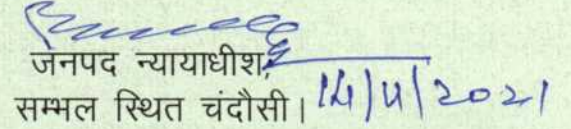 जनपद न्यायाधीश,
सम्भल स्थित चंदौसी। 14/4/2021